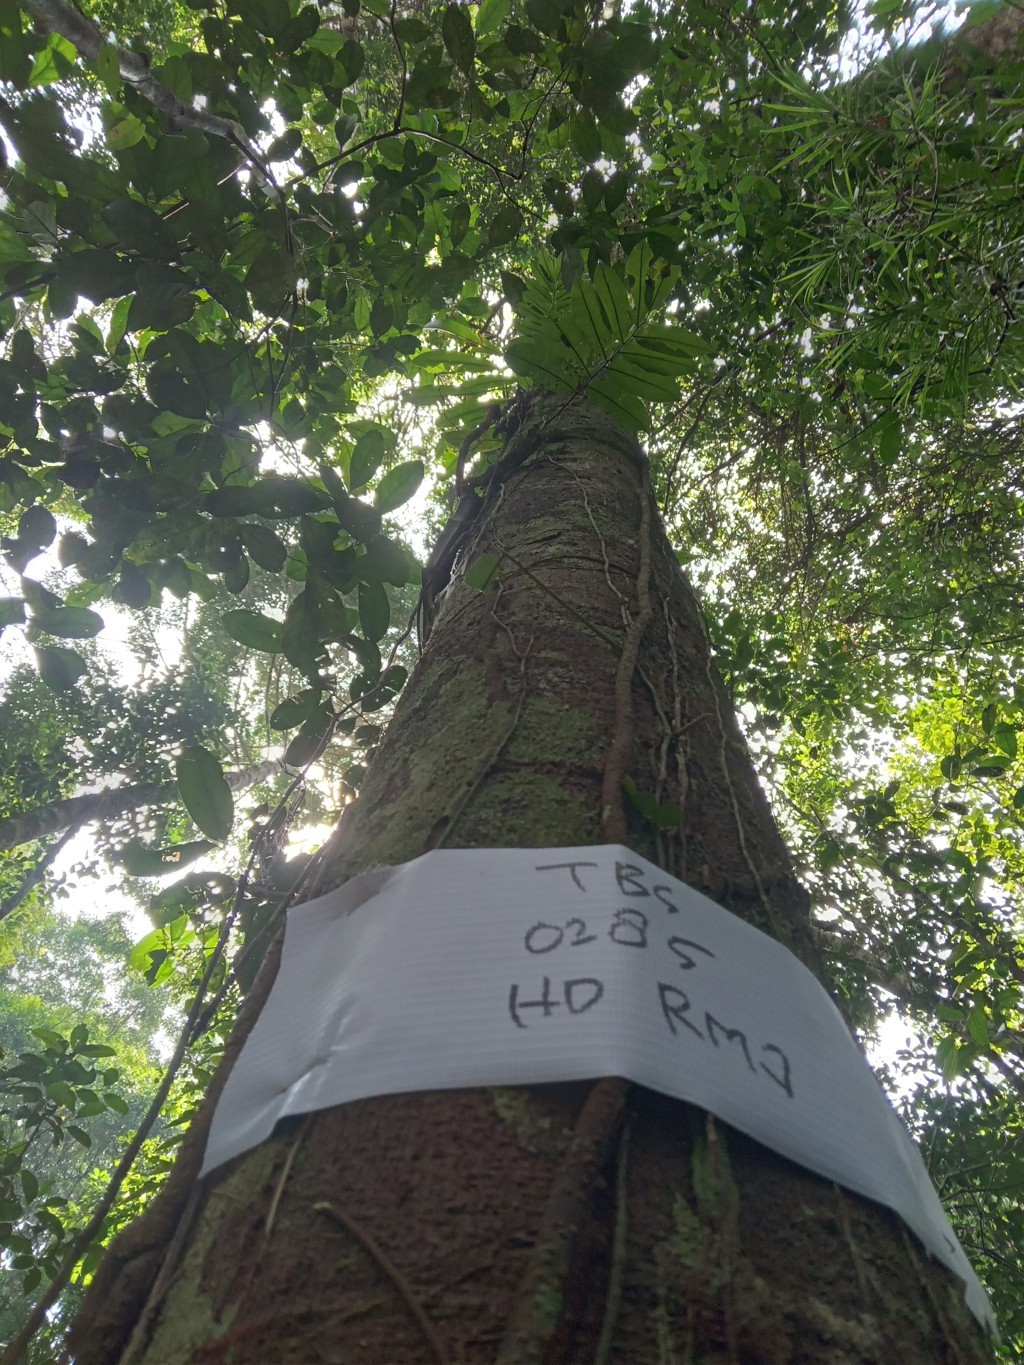 TBS
0285
HD RMJ